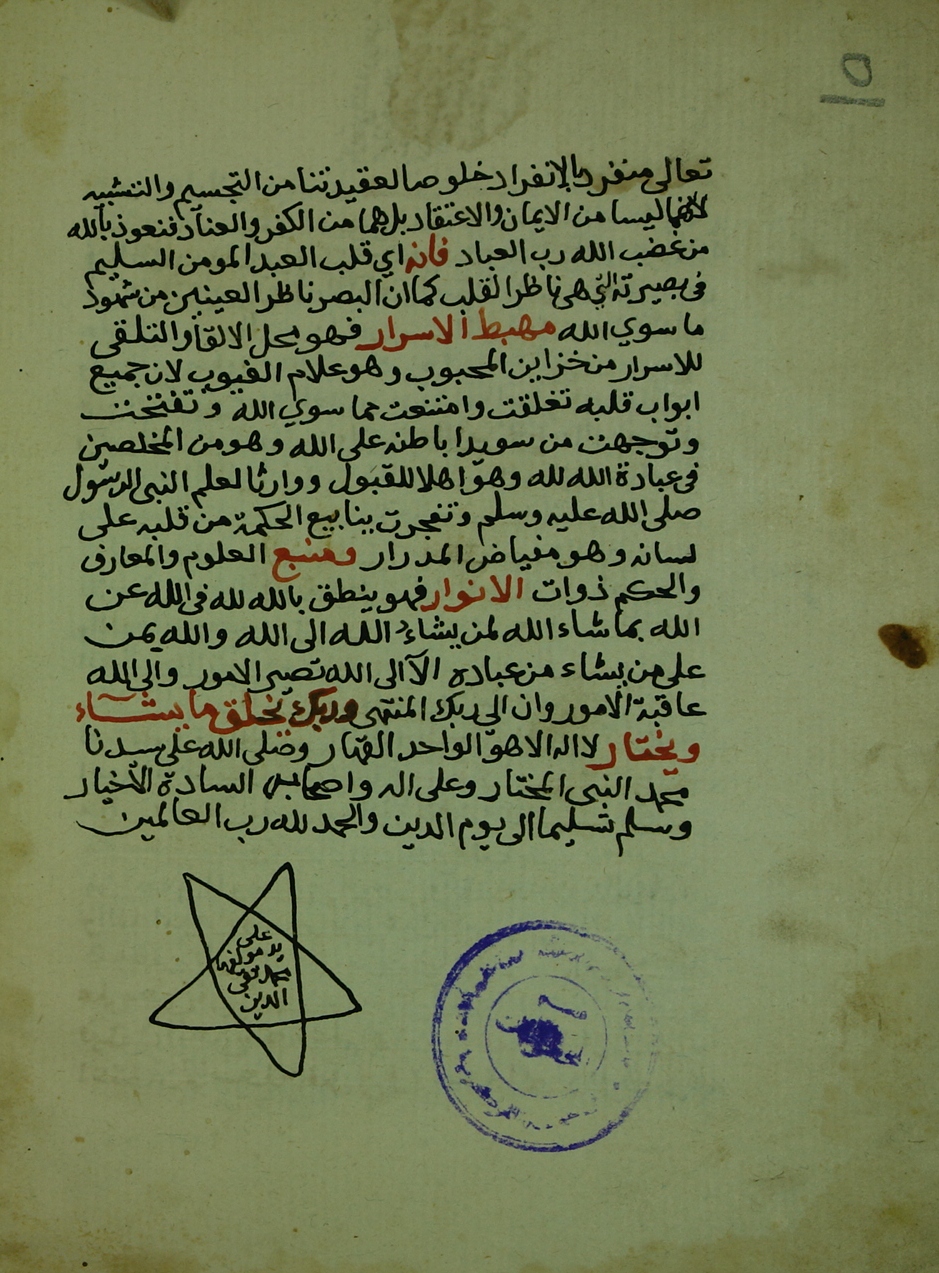 ١٥
تعالى منفرد بالانفراد خلوصا لعقيدتنا من التجسيم والتشبيه
لانهما ليسا من الايمان والاعتقاد بل هما من الكفر والعناد فنعوذ بالله
من غضب الله رب العباد فانه اي قلب العبد المومن السليم
في بصيرته التي هي ناظر القلب كما ان البصر ناظر العينين من شهود
ما سوي الله مهبط الاسرار فهو محل الالقاء والتلقى
للاسرار من خزاين المحبوب وهو علام الغيوب لان جميع
ابواب قلبه تغلقت وامتنعت عما سوي الله وتفتحت
وتوجهت من سويدا باطنه على الله وهو من المخلصين
فى عبادة الله لله وهو اهلا للقبول ووارثا لعلم النبى الرسول
صلى الله عليه وسلم وتفجرت ينابيع الحكمة من قلبه على
لسانه وهو مفياض المدرار ومنبع العلوم والمعارف
والحكم ذوات الانوار فهو ينطق بالله لله فى الله عن
الله بما شاء الله لمن يشاء الله الى الله والله يمن
على من يشاء من عباده الآ الى الله تصير الامور والى الله
عاقبة الامور وان الى ربك المنتهى وربك يخلق ما يشاء
ويختار لا اله الا هو الواحد القهار وصلى الله على سيدنا
محمد النبى المختار وعلى اله واصحابه السادة الاخيار
وسلم تسليما الى يوم الدين والحمد لله رب العالمين
على
يد مولفه
محمد تقي
الدين